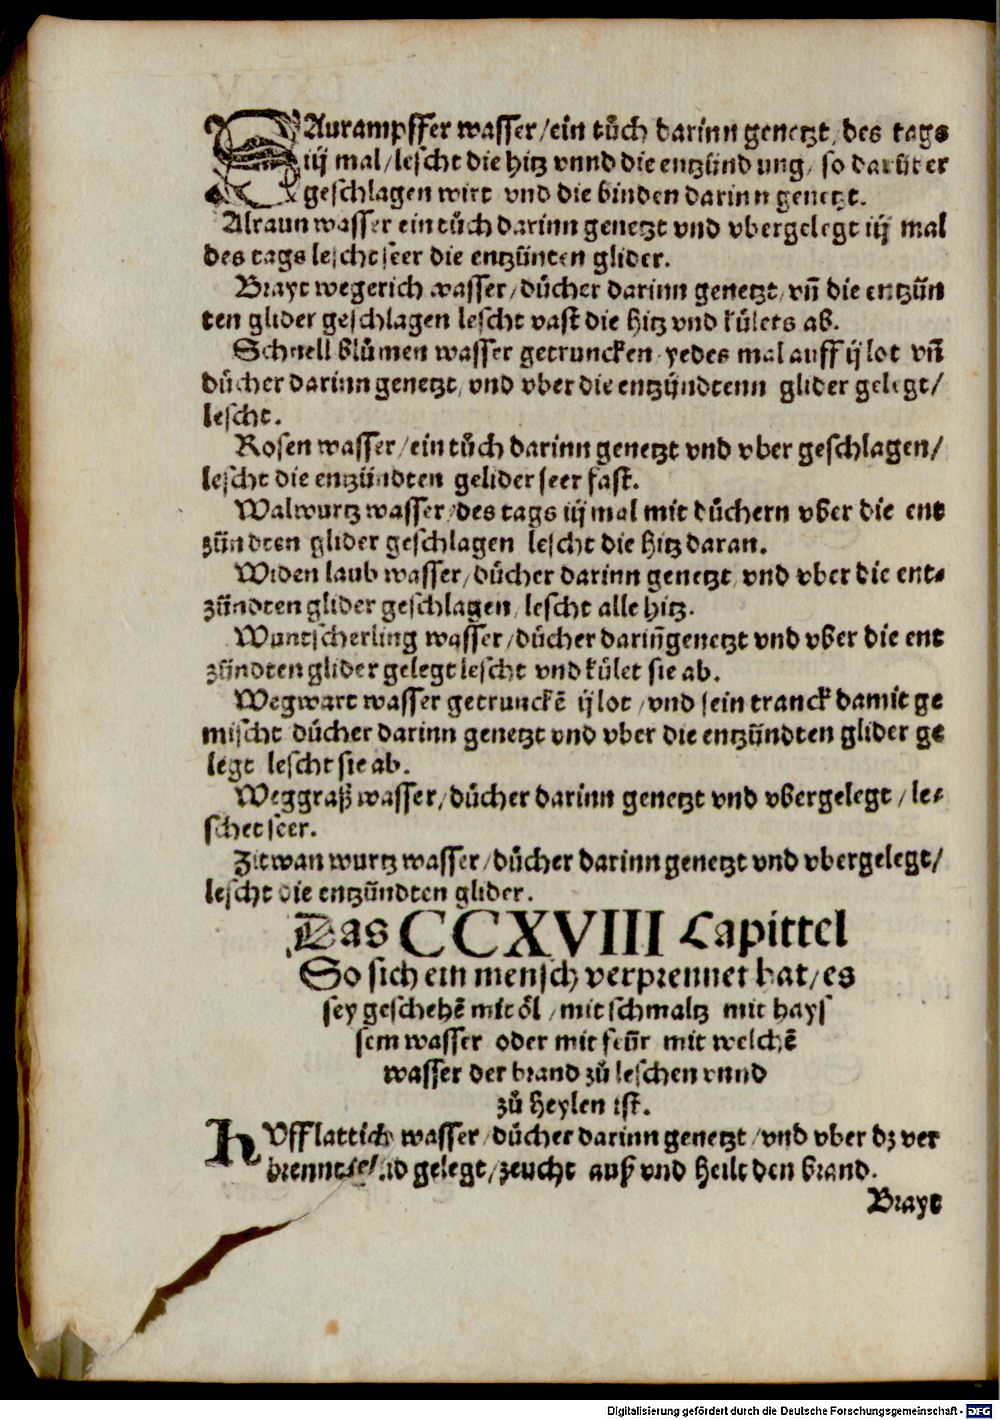 SAurampffer wasser/ein tuͦch darinn genetzt/des tags
iij mal/lescht die hitz vnnd die entzündung/so darüber
geschlagen wirt vnd die binden darinn genetzt.
Alraun wasser ein tuͦch darinn genetzt vnd vbergelegt iij mal
des tags lescht seer die entzünten glider.
Brayt wegerich wasser/duͤcher darinn genetzt/vñ die entzün
ten glider geschlagen lescht vast die hitz vnd kuͤlets ab.
Schnell bluͦmen wasser getruncken yedes mal auff ij lot vñ
duͤcher darinn genetzt/vnd vber die entzündtenn glider gelegt/
lescht.
Rosen wasser/ein tuͦch darinn genetzt vnd vber geschlagen/
lescht die entzündten gelider seer fast.
Walwurtz wasser/des tags iij mal mit duͤchern vber die ent
zündten glider geschlagen lescht die hitz daran.
Widen laub wasser/duͤcher darinn genetzt vnd vber die ent⸗
zündten glider geschlagen/lescht alle hitz.
Wuntscherling wasser/duͤcher dariñ genetzt vnd vber die ent
zündten glider gelegt lescht vnd kuͤlet sie ab.
Wegwart wasser getrunckẽ ij lot/vnd sein tranck damit ge
mischt duͤcher darinn genetzt vnd vber die entzündten glider ge
legt lescht sie ab.
Weggraß wasser/duͤcher darinn genetzt vnd vbergelegt/le⸗
schet seer.
Zitwan wurtz wasser/duͤcher darinn genetzt vnd vbergelegt/
lescht die entzündten glider.
Das CCXVIII Capittel
So sich ein mensch verprennet hat/es
sey geschehẽ mit oͤl/mit schmaltz mit hays
sem wasser oder mit feür mit welchẽ
wasser der brand zuͦ leschen vnnd
zuͦ heylen ist.
HVfflattich wasser/duͤcher darinn genetzt/vnd vber dz ver
brennt gelegt/zeucht auß vnd heilt den brand.
Brayt
Digitalisierung gefördert durch die Deutsche Forschungsgemeinschaft - DFG